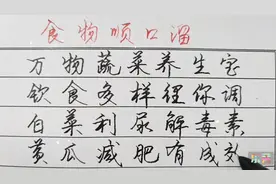 食物顺口溜
万物蔬菜养生宝
饮食多样任你调
白菜利尿解毒素
黄瓜减肥有成效